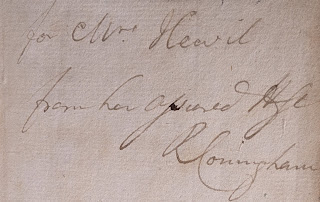 for Mrs Hewit
from her assured
R Coningham